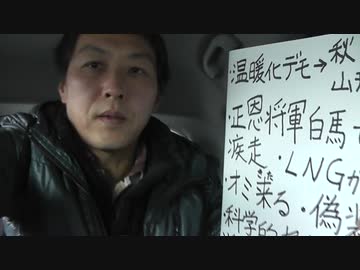 ・温暖化デモ→秋
山
・正恩将軍白馬
疾走・LNGが
・オミ来る・偽
・科学的